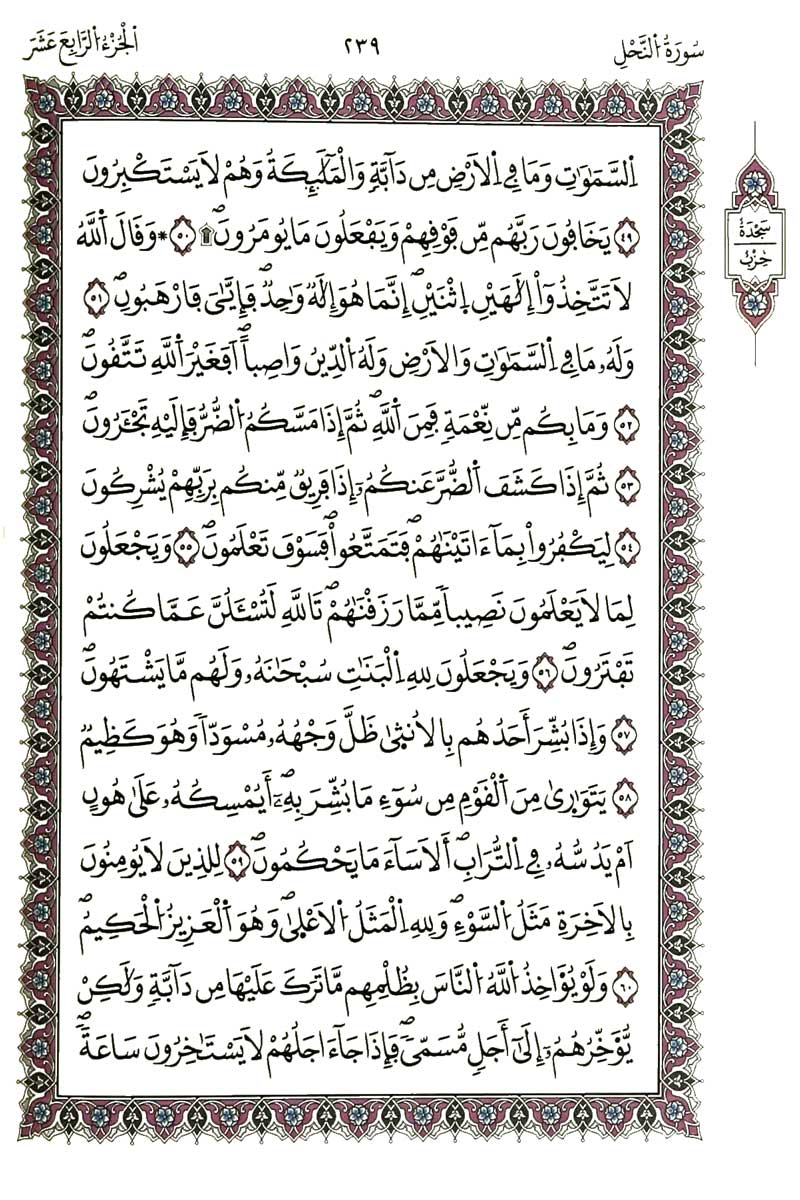 سُورَةُ النَّحْلِ
٢٣٩
الْجُزْءُ الرَّابِعَ عَشَرَ
اَ۬لسَّمَٰوَٰتِ وَمَا فِے اِ۬لَارْضِ مِن دَآبَّةٖ وَالْمَلَٰٓئِكَةُ وَهُمْ لَا يَسْتَكْبِرُونَ
٤٩ يَخَافُونَ رَبَّهُم مِّن فَوْقِهِمْ وَيَفْعَلُونَ مَا يُومَرُونَۖ ۩ ٥٠ * وَقَالَ اَ۬للَّهُ
لَا تَتَّخِذُوٓاْ إِلَٰهَيْنِ اِ۪ثْنَيْنِۖ إِنَّمَا هُوَ إِلَٰهٞ وَٰحِدٞۖ فَإِيَّٰيَ فَارْهَبُونِۖ ٥١
وَلَهُۥ مَا فِے اِ۬لسَّمَٰوَٰتِ وَالَارْضِ وَلَهُ اُ۬لدِّينُ وَاصِباًۖ اَفَغَيْرَ اَ۬للَّهِ تَتَّقُونَۖ
٥٢ وَمَا بِكُم مِّن نِّعْمَةٖ فَمِنَ اَ۬للَّهِۖ ثُمَّ إِذَا مَسَّكُمُ اُ۬لضُّرُّ فَإِلَيْهِ تَجْـَٔرُونَۖ
٥٣ ثُمَّ إِذَا كَشَفَ اَ۬لضُّرَّ عَنكُمُۥٓ إِذَا فَرِيقٞ مِّنكُم بِرَبِّهِمْ يُشْرِكُونَ
٥٤ لِيَكْفُرُواْ بِمَآ ءَاتَيْنَٰهُمْۖ فَتَمَتَّعُواْۖ فَسَوْفَ تَعْلَمُونَۖ ٥٥ وَيَجْعَلُونَ
لِمَا لَا يَعْلَمُونَ نَصِيباٗ مِّمَّا رَزَقْنَٰهُمْۖ تَاللَّهِ لَتُسْـَٔلُنَّ عَمَّا كُنتُمْ
تَفْتَرُونَۖ ٥٦ وَيَجْعَلُونَ لِلهِ اِ۬لْبَنَٰتِ سُبْحَٰنَهُۥ وَلَهُم مَّا يَشْتَهُونَۖ
٥٧ وَإِذَا بُشِّرَ أَحَدُهُم بِالُانث۪ىٰ ظَلَّ وَجْهُهُۥ مُسْوَدّاٗ وَهُوَ كَظِيمٞ
٥٨ يَتَوَٰر۪ىٰ مِنَ اَ۬لْقَوْمِ مِن سُوٓءِ مَا بُشِّرَ بِهِۦٓۖ أَيُمْسِكُهُۥ عَلَىٰ هُونٍ
اَمْ يَدُسُّهُۥ فِے اِ۬لتُّرَابِۖ أَلَا سَآءَ مَا يَحْكُمُونَۖ ٥٩ لِلذِينَ لَا يُومِنُونَ
بِالَاخِرَةِ مَثَلُ اُ۬لسَّوْءِۖ وَلِلهِ اِ۬لْمَثَلُ اُ۬لَاعْل۪ىٰۖ وَهُوَ اَ۬لْعَزِيزُ اُ۬لْحَكِيمُۖ
٦٠ وَلَوْ يُؤَاخِذُ اُ۬للَّهُ اُ۬لنَّاسَ بِظُلْمِهِم مَّا تَرَكَ عَلَيْهَا مِن دَآبَّةٖ وَلَٰكِنْ
يُّؤَخِّرُهُمُۥٓ إِلَىٰٓ أَجَلٖ مُّسَمّىٗۖ فَإِذَا جَآءَ اجَلُهُمْ لَا يَسْتَٰخِرُونَ سَاعَةٗۖ
سَجْدَةٌ
حِزْب